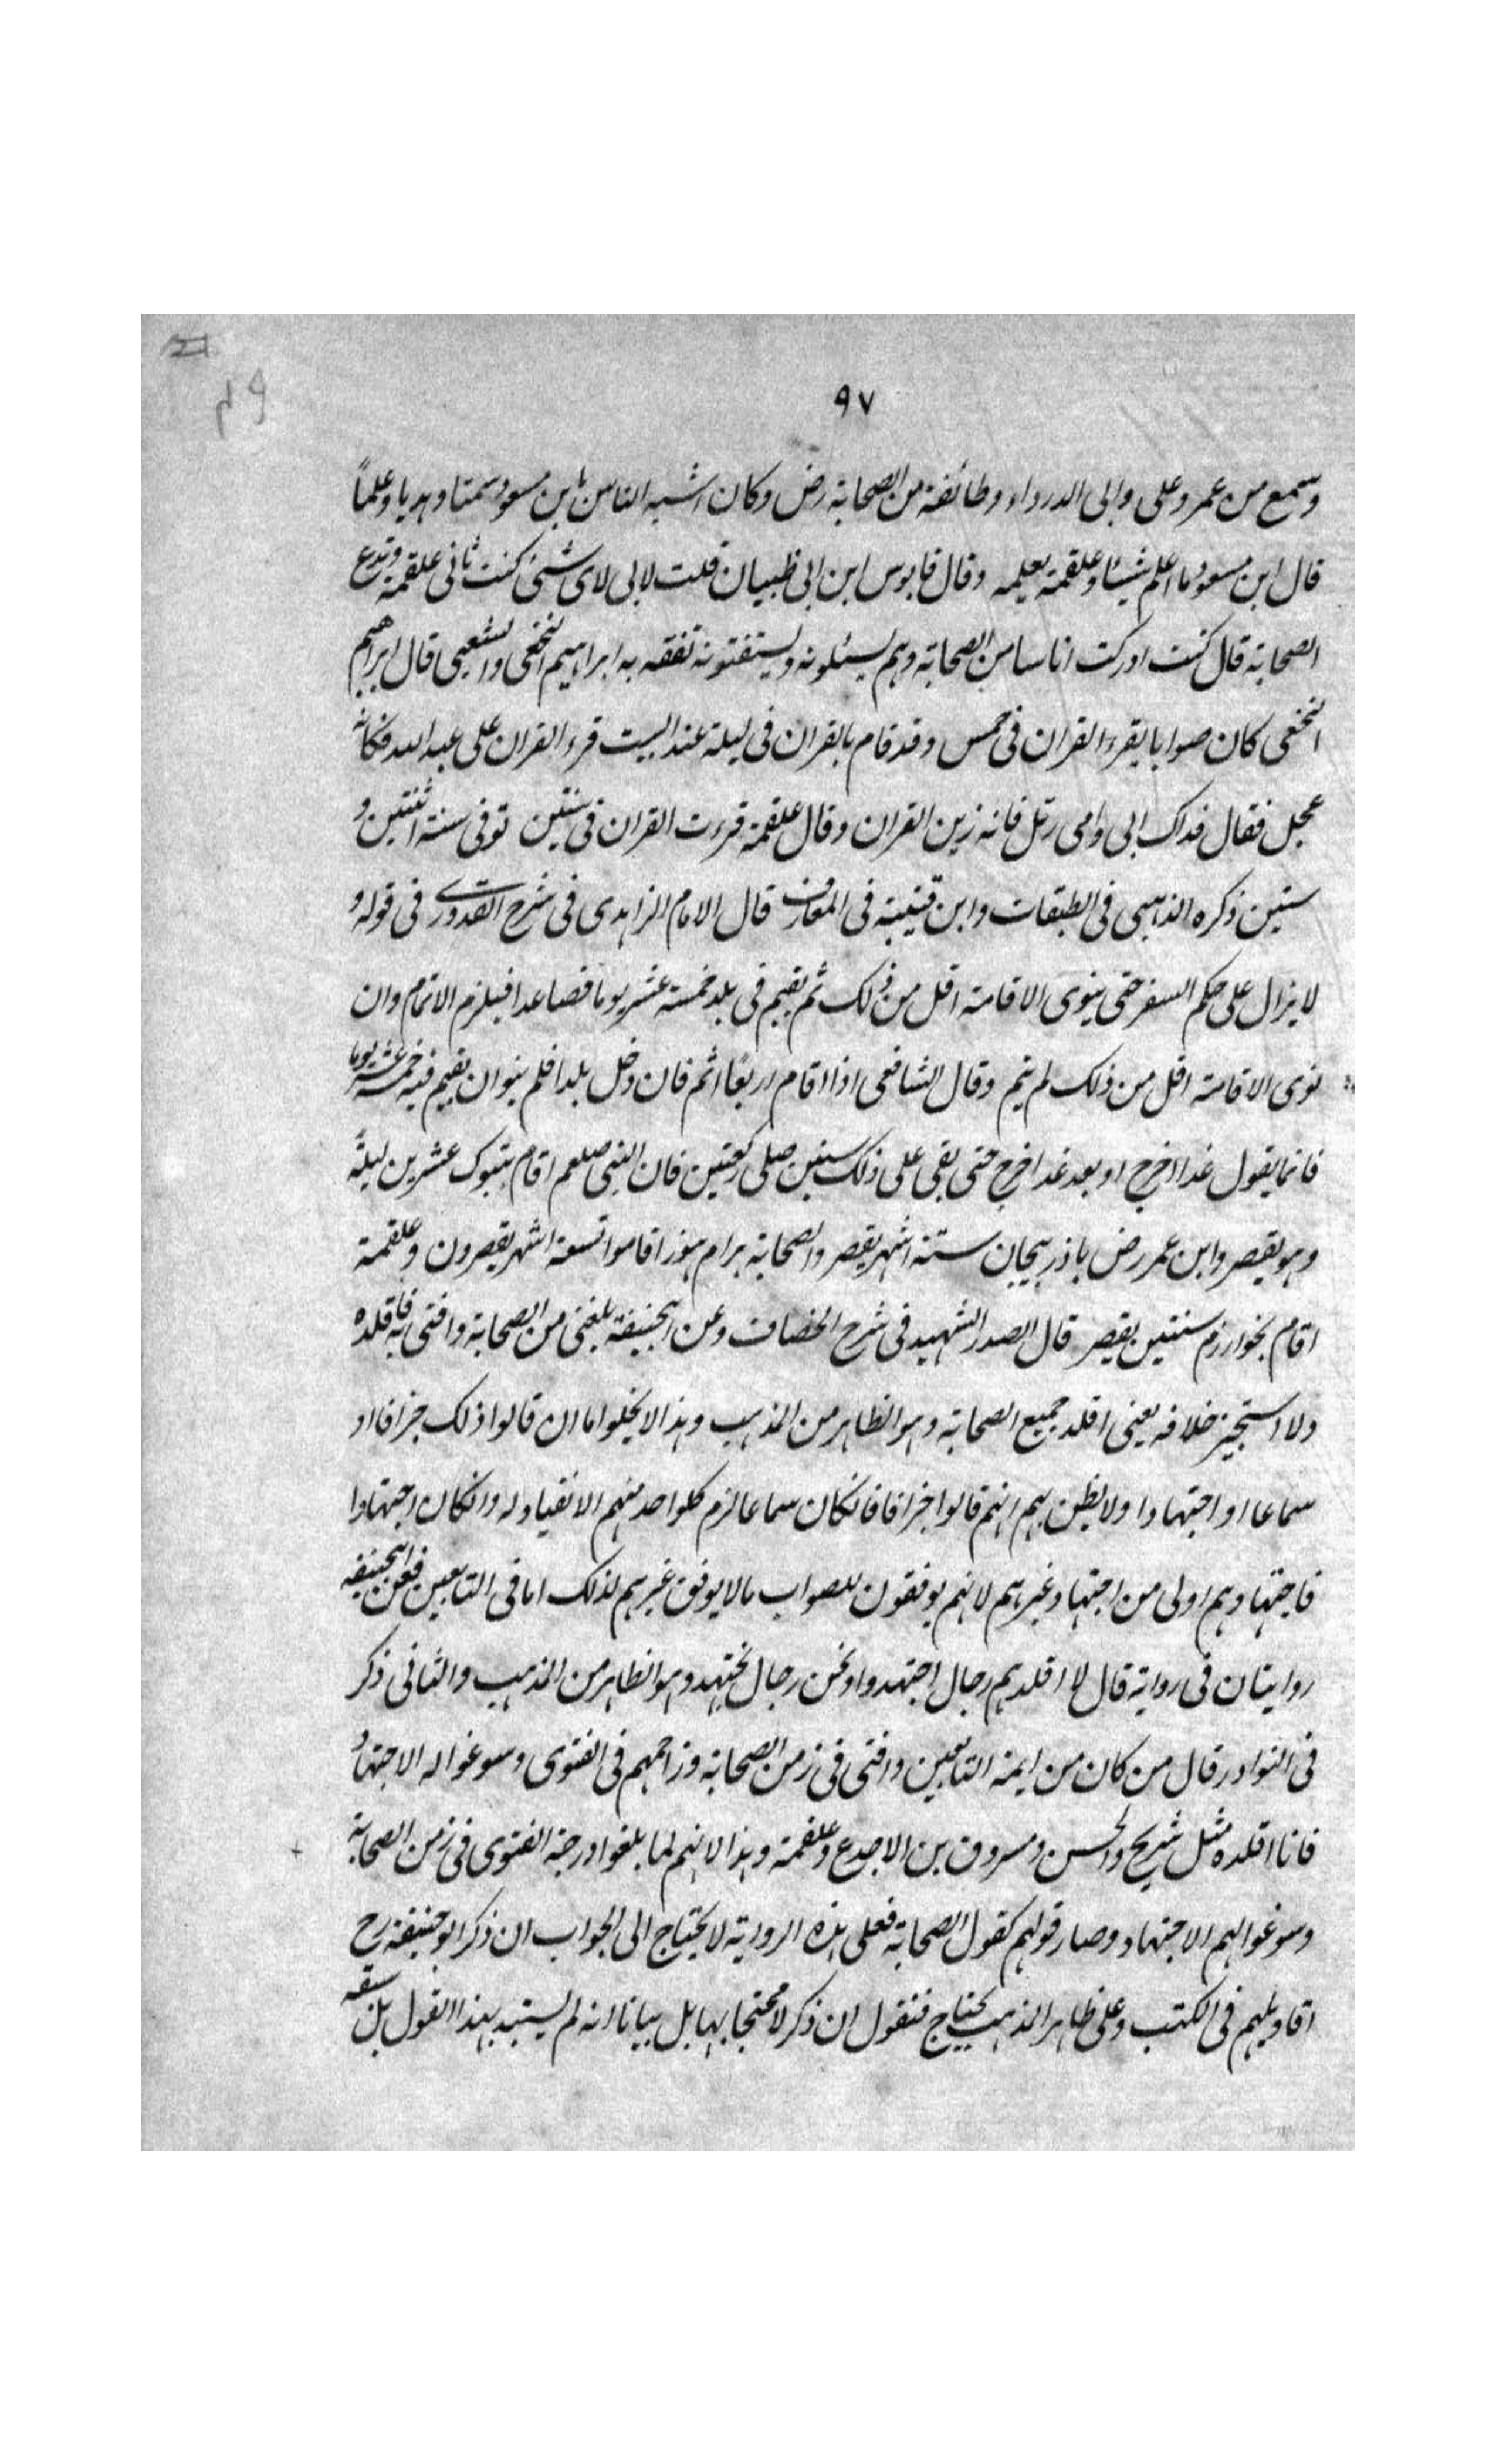 ٩٧
وسمع من عمر وعلى وابى الدرداء وطائفة من الصحابة رض وكان اشبه الناس بابن مسعود سمتا وهديا وعلماً
قال ابن مسعود ما اعلم شيئا وعلقمة يعلمه وقال قابوس ابن ابى ظبيان قلت لابى لاى شئ كنت تاتى علقمة وتدع
الصحابة قال كنت ادركت اناسا من الصحابة وهم يسئلونه ويستفتونه تفقه به ابراهيم النخعى والشعبى قال ابراهيم
النخعى كان صوابا يقرء القران فى خمس وقد قام بالقران فى ليلة عند البيت قرء القران على عبد الله فكانه
عجل فقال فداك ابى وامى رتل فانه زين القران وقال علقمة قرءت القران فى سنتين توفى سنة اثنتين و
ستين ذكره الذهبى فى الطبقات وابن قتيبة فى المعارف قال الامام الزاهدى فى شرح القدورى فى قوله و
لا يزال على حكم السفر حتى ينوى الاقامة اقل من ذلك ثم يقيم فى بلد خمسة عشر يوما فصاعدا فيلزم الاتمام وان
نوى الاقامة اقل من ذلك لم يتم وقال الشافعى اذا اقام اربعًا اتم فان دخل بلدا فلم ينو ان يقيم فيه خمسة عشر يوما
فانما يقول غدا اخرج او بعد غد اخرج حتى بقى على ذلك سنين صلى ركعتين فان النبى صلعم اقام بتبوك عشرين ليلة
وهو يقصر وابن عمر رض باذربيجان ستة اشهر يقصر والصحابة برام هوز اقاموا تسعة اشهر يقصرون وعلقمة
اقام بخوارزم سنتين يقصر قال الصدر الشهيد فى شرح الخصاف وعن ابيحنيفة بلغنى من الصحابة وافتى به فاقلده
ولا استجيز خلافه يعنى اقلد جميع الصحابة وهو الظاهر من المذهب وهذا لا يخلوا ما ان قالوا ذلك جزافا او
سماعا او اجتهادا ولا يظن بهم انهم قالوا جزافا فانكان سماعا لزم كلواحد منهم الانقياد له وانكان اجتهادا
فاجتهادهم اولى من اجتهاد غيرهم لانهم يوفقون للصواب مالا يوفق غيرهم لذلك اما فى التابعين فعن ابيحنيفه
روايتان فى رواية قال لا اقلدهم رجال اجتهدوا ونحن رجال نجتهد وهو الظاهر من المذهب والثانى ذكر
فى النوادر قال من كان من ايمة التابعين وافتى فى زمن الصحابة وزاحمهم فى الفتوى وسوغوا له الاجتهاد
فانا اقلده مثل شريح والحسن ومسروق بن الاجدع وعلقمة وهذا لانهم لما بلغوا درجة الفتوى فى زمن الصحابة
وسوغوا لهم الاجتهاد وصار قولهم كقول الصحابة فعلى هذه الرواية لا يحتاج الى الجواب ان ذكر ابو حنيفة رح
اقاويلهم فى الكتب وعلى ظاهر المذهب يحتاج فنقول ان ذكر لا محتجا بها بل بيانا انه لم يستبد بهذا القول بل سبقه